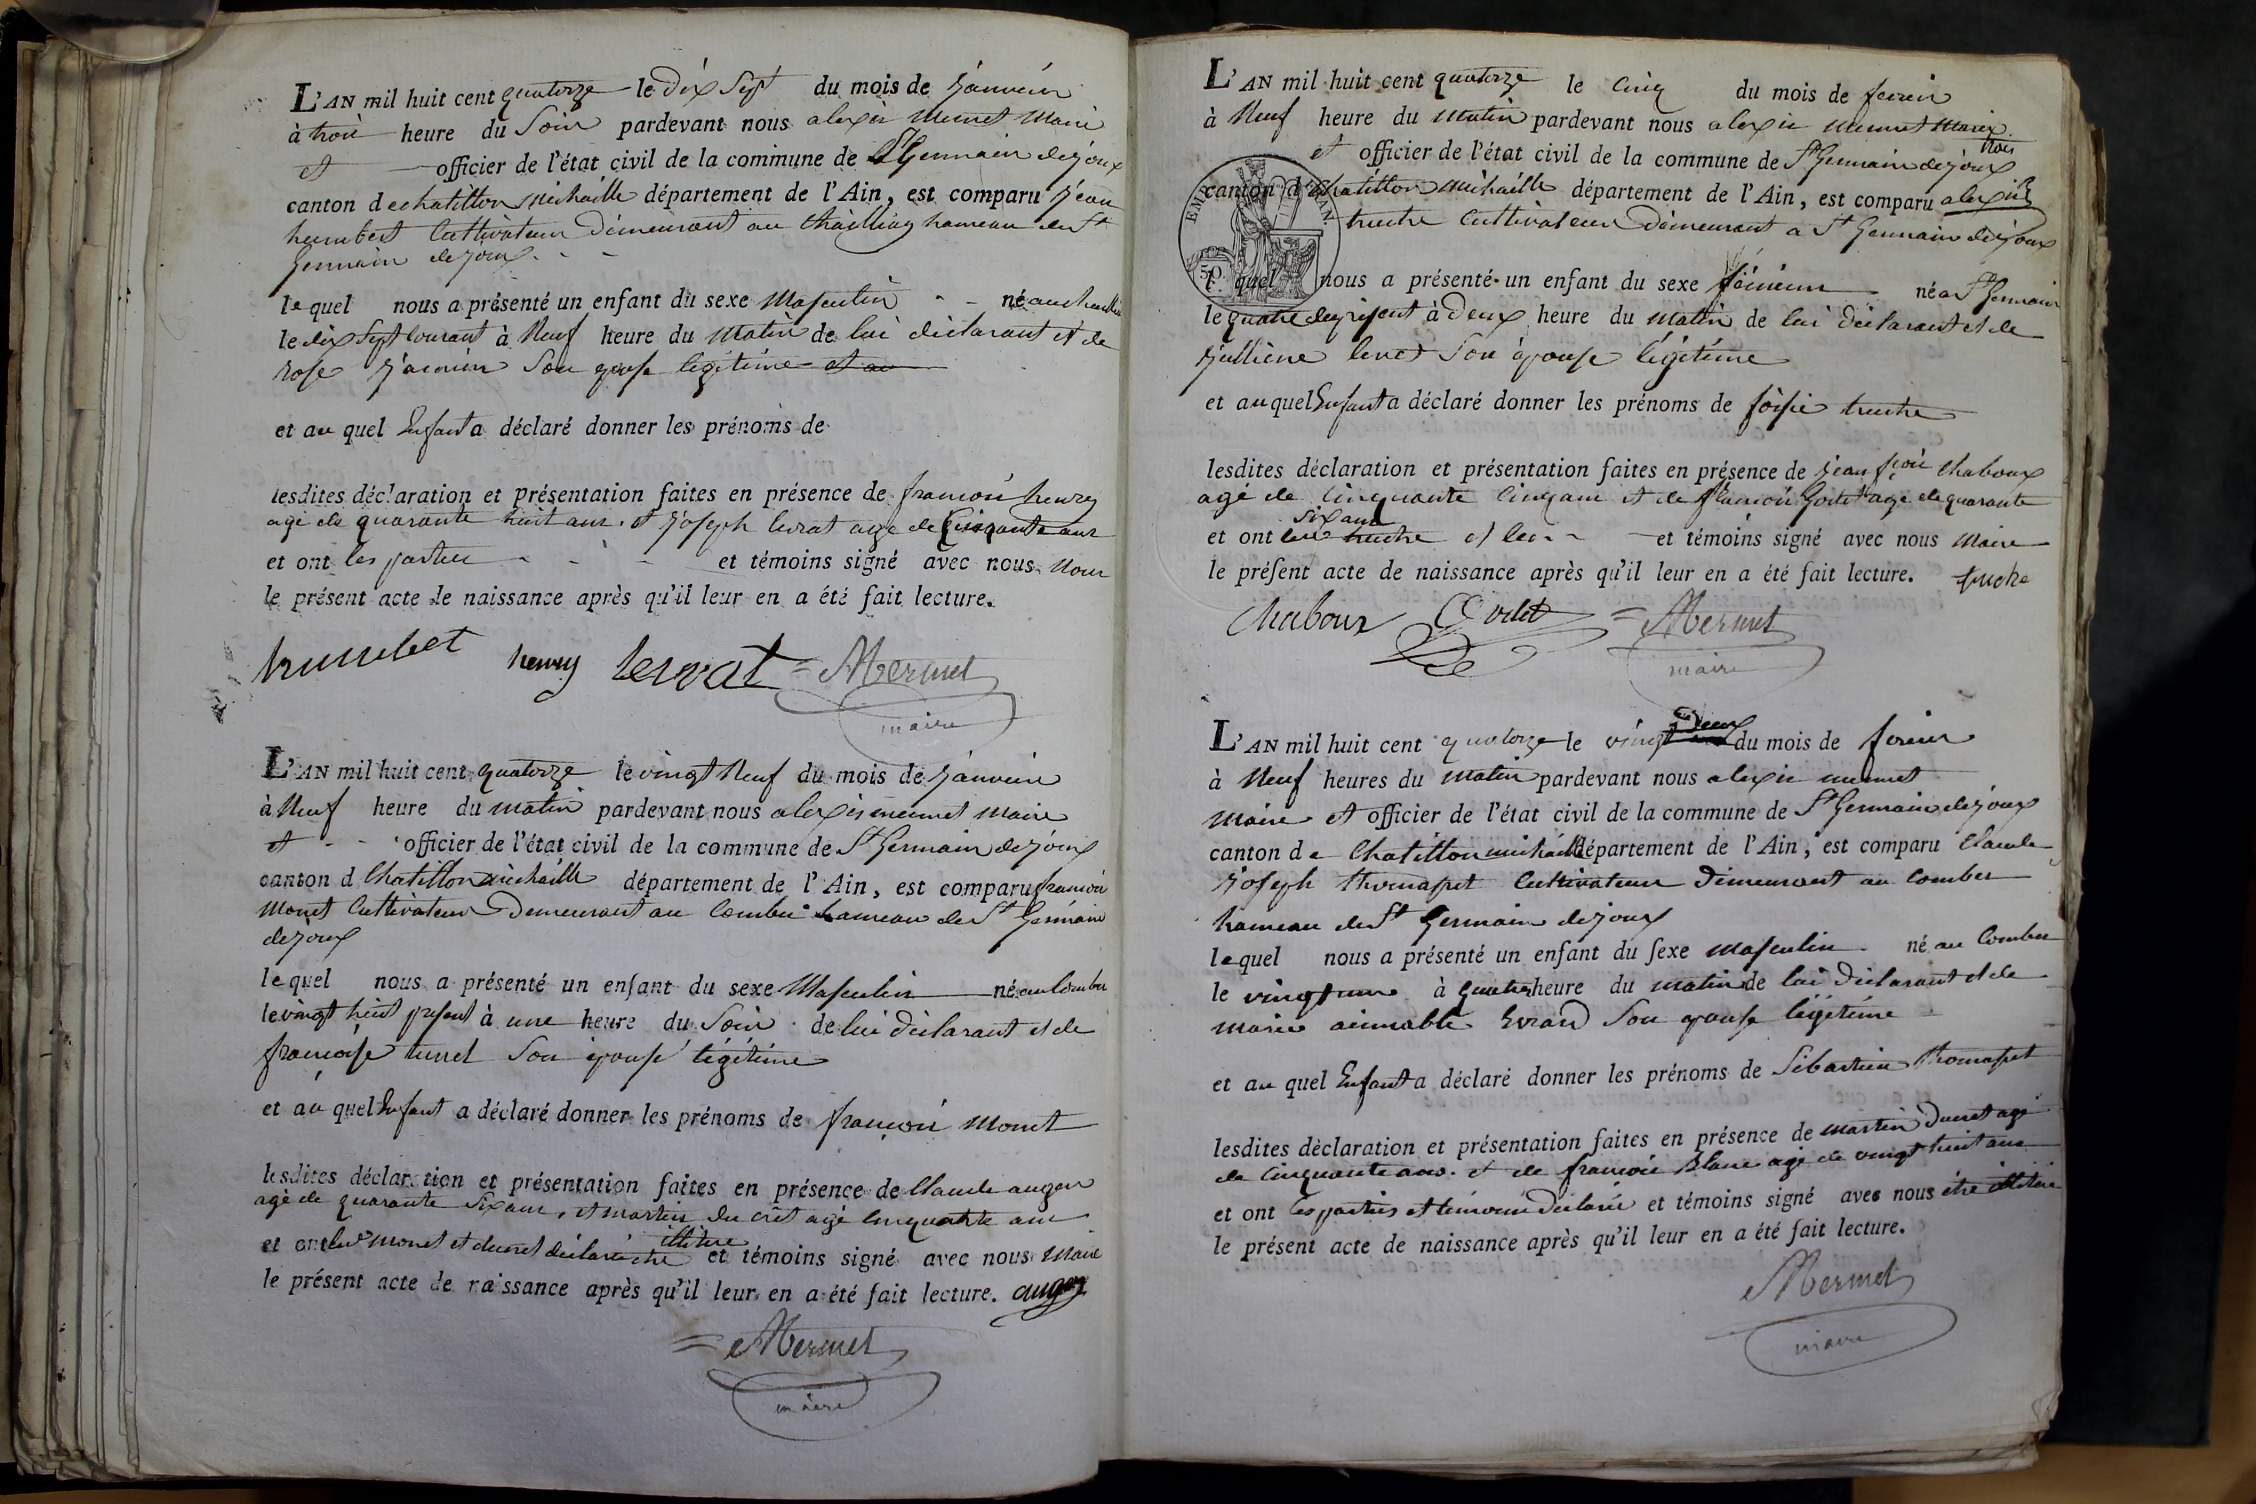 L'AN mil huit cent quatorze le dix sept du mois de janvier
à trois heure du Soir pardevant nous alexis mermet Maire
et officier de l'état civil de la commune de St Germain dejoux
canton de chatillon michaille département de l'Ain, est comparu jean
humbert Cultivateur Demeurant au hameau de St
Germain dejoux
le quel nous a présenté un enfant du sexe Masculin né au
le dix Sept courant à Neuf heure du Matin de lui déclarant et de
Rose Son epouse légitime et au
et au quel Enfant a déclaré donner les prénoms de
lesdites déclaration et présentation faites en présence de francois henry
agé de quarante huit ans et joseph levrat agé de Cinquante ans
et ont les parties et témoins signé avec nous Nous
le présent acte de naissance après qu'il leur en a été fait lecture.
humbet henry lervat AMermet
maire
L'AN mil huit cent quatorze le vingt Neuf du mois de janvier
à Neuf heure du matin pardevant nous alexis mermet Maire
et officier de l'état civil de la commune de St Germain dejoux
canton d Chatillon michaille département de l'Ain, est comparu francois
Monet Cultivateur Demeurant au Combet hameau de St Germain
dejoux
le quel nous a présenté un enfant du sexe Masculin né au Combet
le vingt huit présent à une heure du Soir de lui déclarant et de
françoise turrel Son épouse légitime
et au quel Enfant a déclaré donner les prénoms de françois Monet
lesdites déclaration et présentation faites en présence de Claude auger
agé de quarante Six ans, et martin du crêt agé cinquante ans
et ont led Monet et ducret déclaré être illitéré et témoins signé avec nous Maire
le présent acte de naissance après qu'il leur en a été fait lecture. auger
AMermet
maire
L'AN mil huit cent quatorze le Cinq du mois de fevrier
à Neuf heure du matin pardevant nous alexis mermet Maire
et officier de l'état civil de la commune de St Germain dejoux
canton d Chatillon michaille département de l'Ain, est comparu alexis
truche Cultivateur Demeurant a St Germain dejoux
le quel nous a présenté un enfant du sexe féminin né a St Germain
le quatre du présent à Deux heure du Matin de lui déclarant et de
jullienne Son épouse légitime
et au quel Enfant a déclaré donner les prénoms de truche
lesdites déclaration et présentation faites en présence de jean fçois Chaboux
agé de Cinquante Cinq ans et de francois Godet agé de quarante
six ans
et ont truche et les et témoins signé avec nous Maire
le présent acte de naissance après qu'il leur en a été fait lecture. truche
Chaboux Godet AMermet
maire
L'AN mil huit cent quatorze le vingt Deux du mois de fevrier
à Neuf heures du matin pardevant nous alexis mermet
Maire et officier de l'état civil de la commune de St Germain dejoux
canton de Chatillon michaille département de l'Ain, est comparu Claude
joseph thomasset Cultivateur Demeurant au Combet
hameau de St Germain dejoux
le quel nous a présenté un enfant du sexe masculin né au Combet
le vingt un à quatre heure du matin de lui Déclarant et de
Marie aimable Evrard Son épouse légitime
et au quel Enfant a déclaré donner les prénoms de Sébastien thomasset
lesdites déclaration et présentation faites en présence de Martin Ducret agé
de Cinquante ans et de francois Blanc agé de vingt huit ans
et ont les parties et témoins Déclaré et témoins signé avec nous être illitéré
le présent acte de naissance après qu'il leur en a été fait lecture.
AMermet
maire